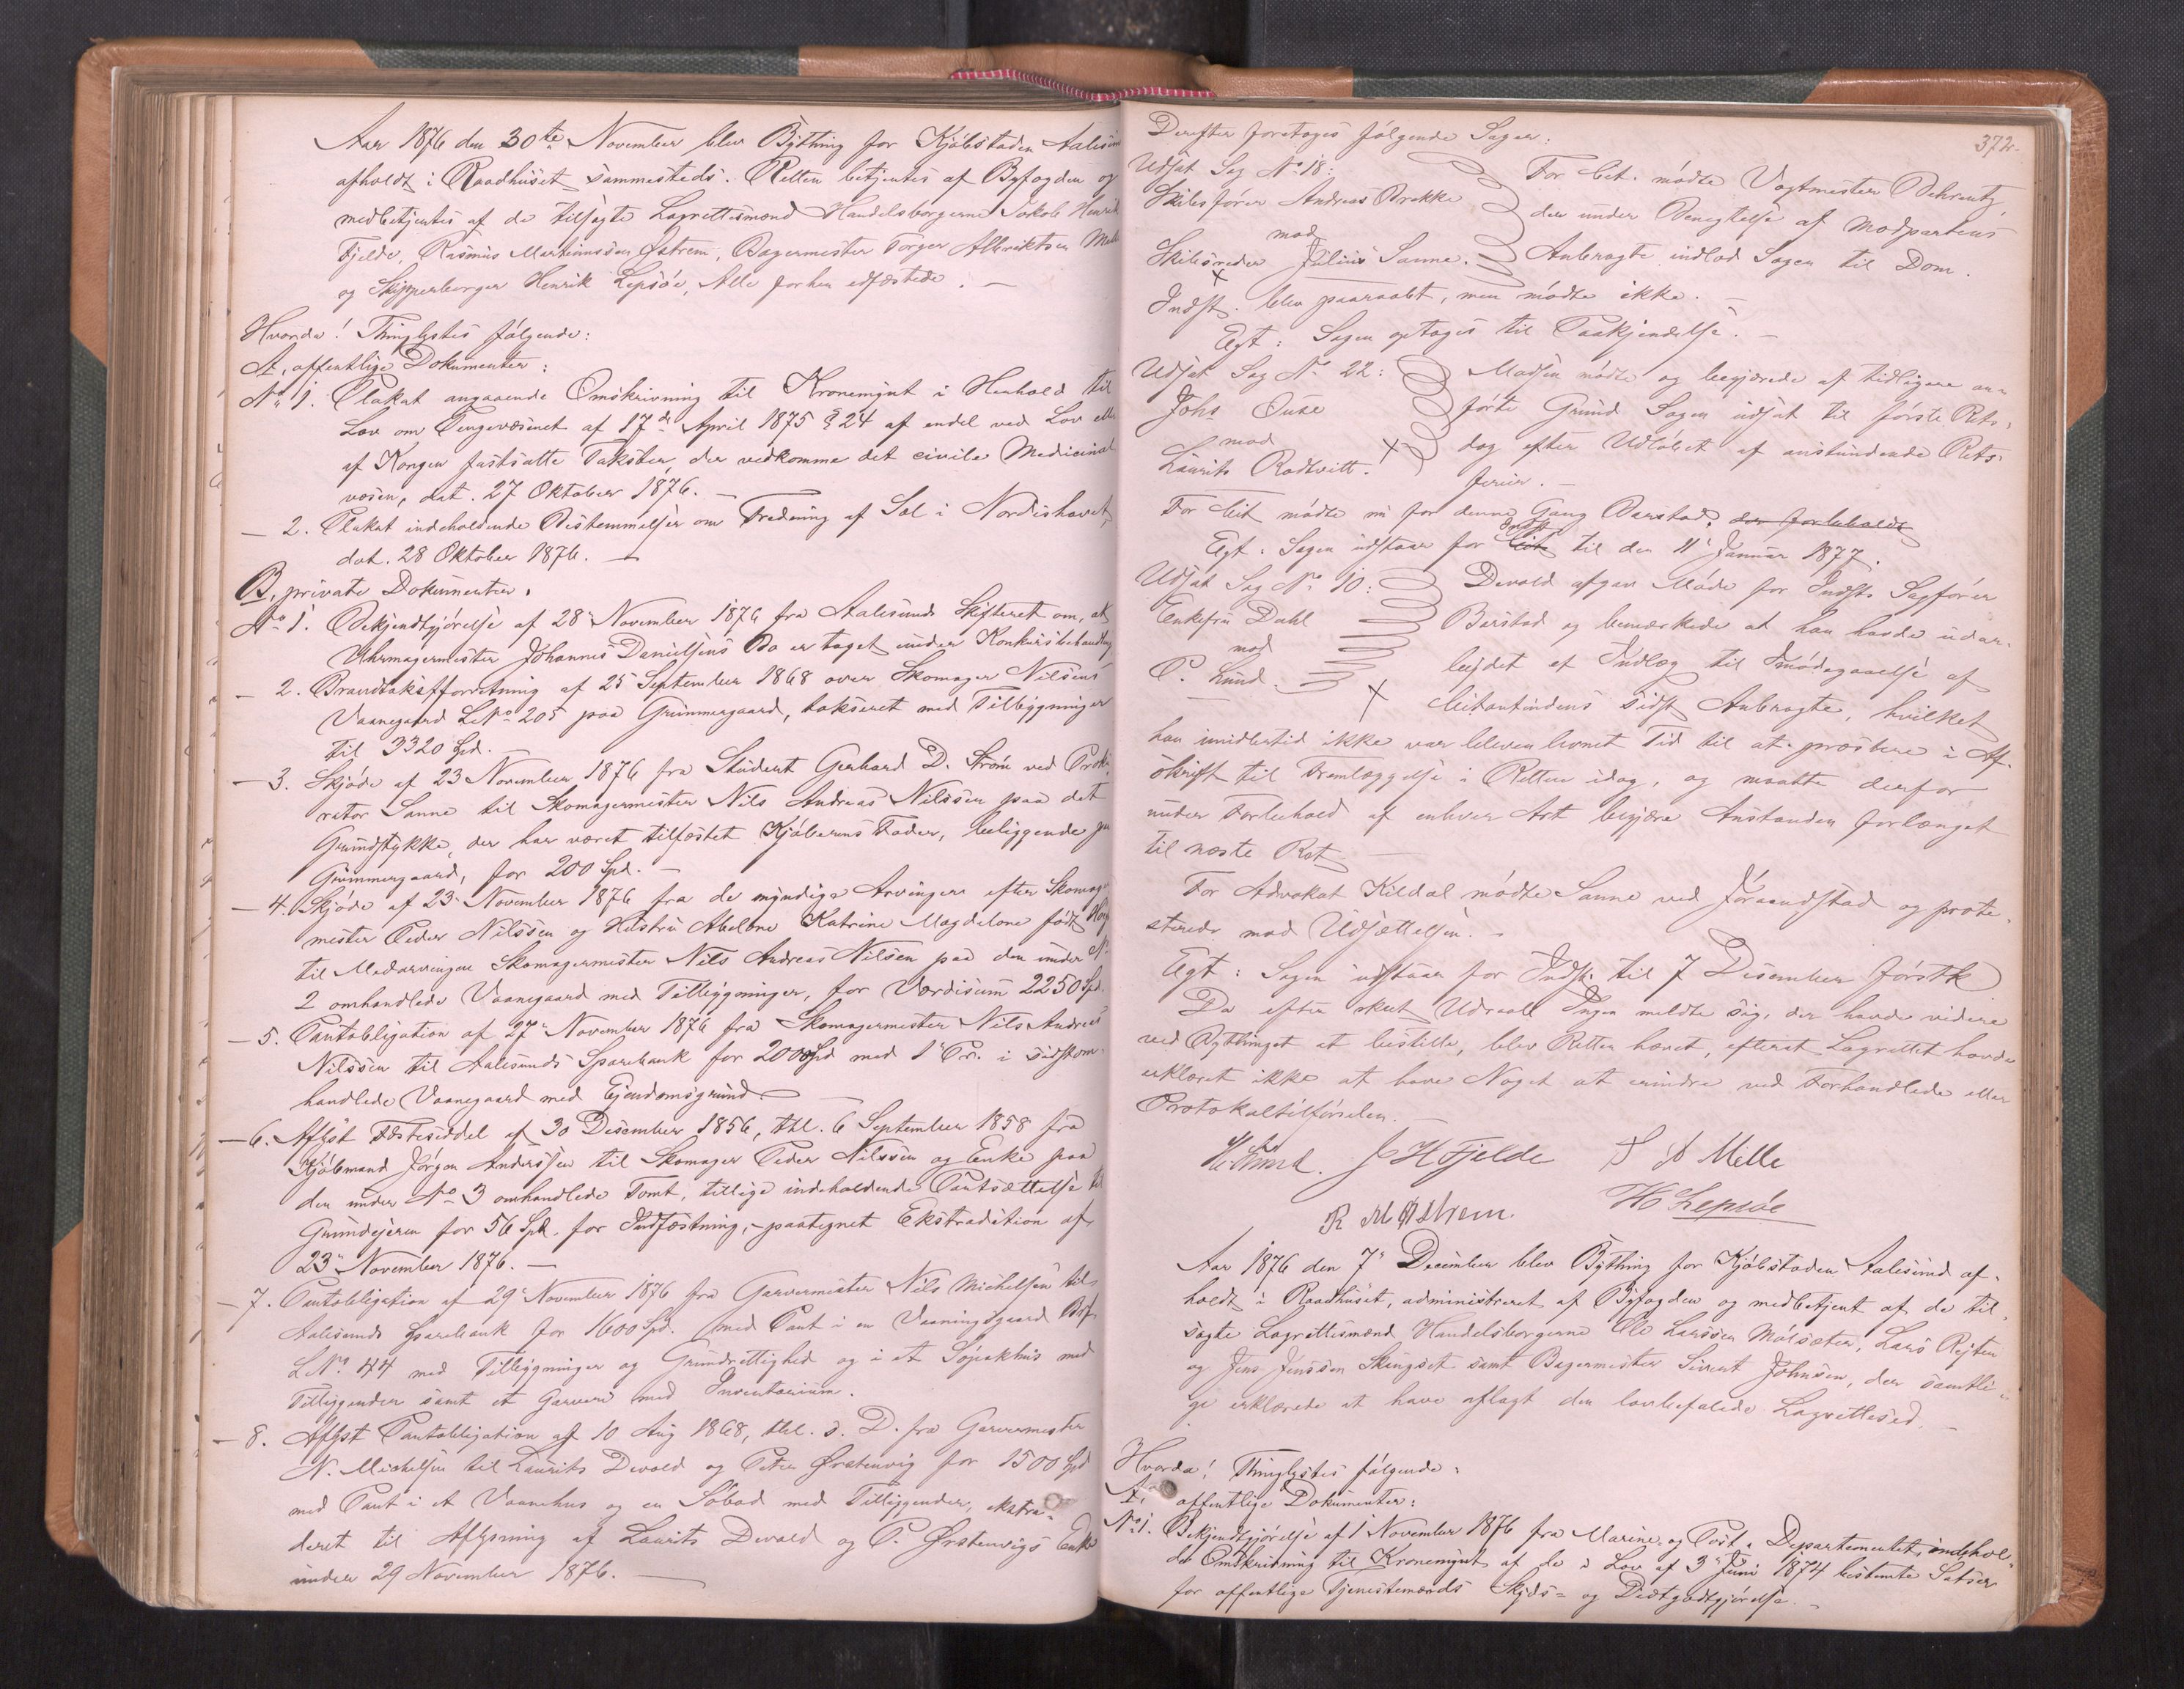 Aar 1876 den 30te November blev Bything for Kjøbstaden Aalesund
afholdt i Raadhuset sammesteds. Retten betjentes af Byfogden og
medbetjentes af de tilsagte Lagrettesmænd Handelsborgerne Jakob Henrik
Fjelde, Rasmus Martinussen Østrem, Bagermester Törger Albriktsen Melle
og Skipperborger Henrik Lepsöe, Alle forhen edfæstede. —
Hvorda! Thinglystes følgende:
A, offentlige Dokumenter:
No 1. Plakat angaaende Omskrivning til Kronemynt i Henhold til
Lov om Pengevæsenet af 17de April 1875 § 24 af endel ved Lov eller
af Kongen fastsatte Takster, der vedkomme det civile Medicinal
væsen, dat. 27 Oktober 1876. —
— 2. Plakat indeholdende Bestemmelser om Fredning af Sæl i Nordishavet,
dat. 28 Oktober 1876. —
B, private Dokumenter.
No 1. Bekjendtgjørelse af 28 November 1876 fra Aalesunds Skifteret om, at
Uhrmagermester Johannes Danielsens Bo er taget under Konkursbehandling
— 2. Brandtakstforretning af 25 September 1868 over Skomager Nilsens
Vaanegaard LNo 205 paa Grimmergaard, takseret med Tilbygninger
til 3320 Spd. —
— 3. Skjøde af 23 November 1876 fra Student Gerhard D. Strøm ved Proku
rator Sanne til Skomagermester Nils Andreas Nilssen paa det
Grundstykke, der har været tilfæstet Kjøberens Fader, beliggende paa
Grimmergaard, for 200 Spd. —
— 4. Skjøde af 23 November 1876 fra de myndige Arvinger efter Skomager
mester Peder Nilssen og Hustru Abelone Katrine Magdelone født
til Medarvingen Skomagermester Nils Andreas Nilsen paa den under No
2 omhandlede Vaanegaard med Tilbygninger, for Værdisum 2250 Spd.
— 5. Pantobligation af 27 November 1876 fra Skomagermester Nils Andreas
Nilssen til Aalesunds Sparebank for 2000 Spd med 1 Pr. i sidstom
handlede Vaanegaard med Ejendomsgrund. —
— 6. Aflyst Fæsteseddel af 30 Desember 1856, thl. 6 September 1858 fra
Kjøbmand Jørgen Anderssen til Skomager Peder Nilssen og Enke paa
den under No 3 omhandlede Tomt, tillige indeholdende Pantsættelse til
Grundejeren for 56 Spd. for Indfæstning, - paategnet Ekstradition af
23 November 1876. —
— 7. Pantobligation af 29 November 1876 fra Garvermester Nils Michelsen til
Aalesunds Sparebank for 1600 Spd. med Pant i en Vaaningsgaard
LNo 44 med Tilbygninger og Grundrettighed og i et Søpakhus med
Tilliggender samt et Garveri med Inventarium.
— 8. Aflyst Pantobligation af 10 Aug 1868, thl. s. D. fra Garvermester
N. Michelsen til Laurits Devold og Peter Ørstenvig for 1500 Spd
med Pant i et Vaanehus og en Søbod med Tilliggender, ekstra-
deret til Aflysning af Laurits Devold og P. Ørstenvigs Enke
under 29 November 1876. —
372.
Derefter foretoges følgende Sager:
Udsat Sag No 18:
Skibsfører Andreas Brekke
mod
Skibsreder Julius Sanne.
For Cit. mødte Vagtmester Behrentz,
der under Benegtelse af Modpartens
Anbragte indlod Sagen til Dom.
Indst. blev paaraabt, men mødte ikke. —
Egt: Sagen optages til Paakjendelse. —
Udsat Sag No 22:
Johs Ouse
mod
Laurits Rodtvitt.
Madsen mødte og begjærede af tidligere an-
ført Grund Sagen udsat til første Rets-
dag efter Udløbet af anstundende Rets-
ferier. —
For Cit mødte nu for denne Gang Barstad, der forbeholdt
Egt: Sagen udstaar for Indst. Cit. til den 11 Januar 1877.
Udsat Sag No 10:
Enkefru Dahl
mod
P. Lund.
Devold afgav Møde for Indsts Sagfører
Barstad og bemærkede at han havde udar-
bejdet et Indlæg til Imødegaaelse af
Citantindens sidst Anbragte, hvilket
han imidlertid ikke var bleven levnet Tid til at præstere i Af-
skrift til Fremlæggelse i Retten idag, og maatte derfor
under Forbehold af enhver Art begjære Anstanden forlænget
til næste Ret. —
For Advokat Kildal mødte Sanne ved Jóraandstad og prote-
sterede mod Udsættelsen. —
Egt: Sagen udstaar for Indst. til 7 Desember førstk
Da efter skeet Udraab Ingen meldte sig, der havde videre
ved Bythinget at bestille, blev Retten hævet, efterat Lagrettet havde
erklæret ikke at have Noget at erindre ved Forhandlede eller
Protokoltilførselen. —
J H Fjelde T A Melle
R M Østrem. H Lepsöe
Aar 1876 den 7 December blev Bything for Kjøbstaden Aalesund af-
holdt i Raadhuset, administreret af Byfogden og medbetjent af de til-
sagte Lagrettesmænd Handelsborgerne Ole Larssen Molsæter, Lars Rejten
og Jens Jenssen Skingset samt Bagermester Sivert Johnsen, der samtli-
ge erklærede at have aflagt den lovbefalede Lagrettesed. —
Hvorda! Thinglystes følgende:
A, offentlige Dokumenter:
No 1. Bekjendtgjørelse af 1 November 1876 fra Marine- og Post-Departementet, indehol-
de Omskrivning til Kronemynt af de i Lov af 3 Juni 1874 bestemte Satser
for offentlige Tjenestemænds Skyds- og Diætgodtgjørelse. —